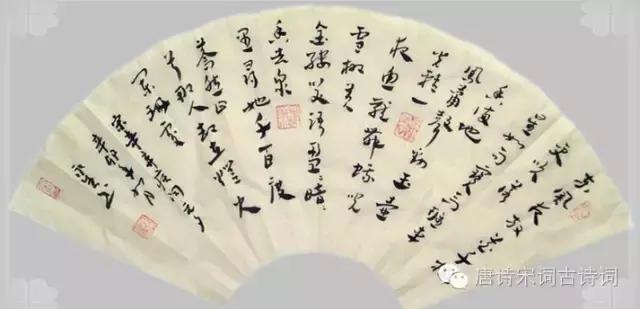 东风夜放花千树
更吹落
星如雨宝马雕车
香满路
凤箫声动玉壶
光转一
夜鱼龙舞蛾儿
雪柳黄
金缕笑语盈盈暗
香去众
里寻他千百度
蓦然
首那人却在灯火
阑珊处
宋辛弃疾词元夕
辛卯
唐诗宋词古诗词